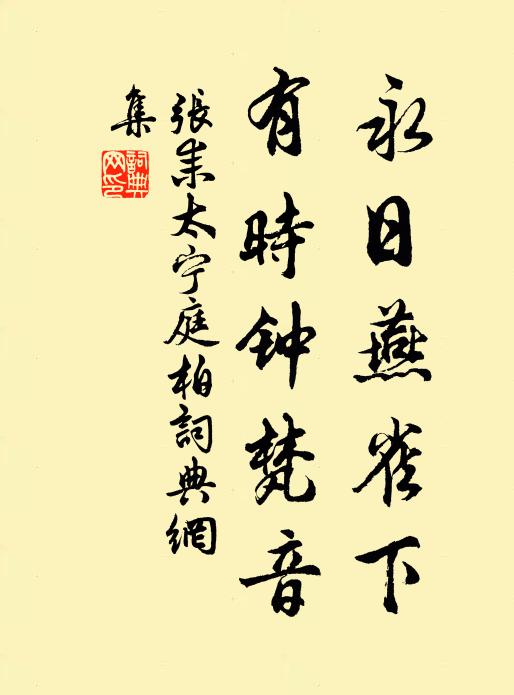 永日燕雀下
有時钟梵音
張耒太宁庭柏詞典網
集
詞典
网印